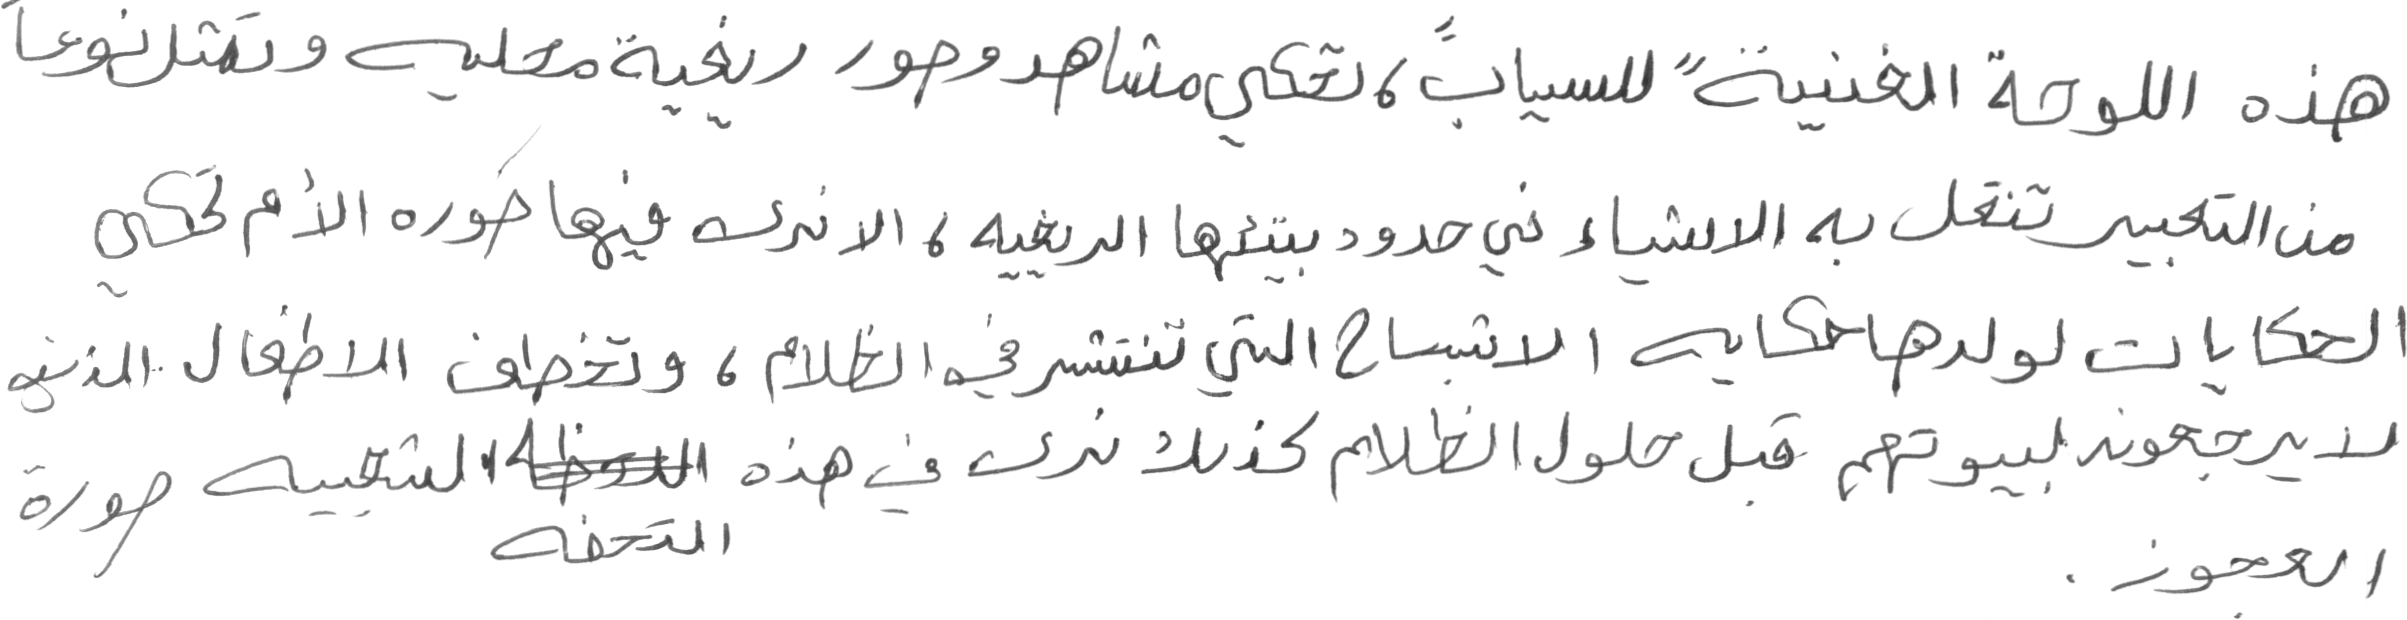 هذه اللوحة الفنية "للسياب"، تحكي مشاهد وصور ريفية محليه وتمثل نوعاً
من التعبير تنقل به الاشياء في حدود بيئتها الريفيه، الا نرى فيها صوره الأم تحكي
الحكايات لولدها حكايه الاشباح التي تنتشر في الظلام، وتخطف الاطفال الذين
لا يرجعون لبيوتهم قبل حلول الظلام كذلك نرى في هذه الشعبيه صورة
التحفه
العجوز.